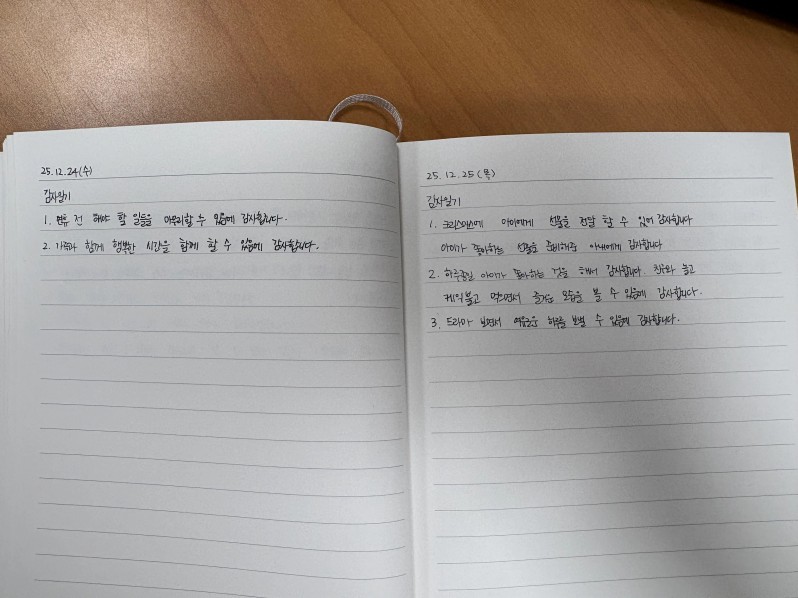 25.12.24(수)
감사일기
1. 연휴 전 해야 할 일들을 마무리할 수 있음에 감사합니다.
2. 가족과 함께 행복한 시간을 함께 할 수 있음에 감사합니다.
25.12.25(목)
감사일기
1. 크리스마스에 아이에게 선물을 전달 할 수 있어 감사합니다
아이가 좋아하는 선물을 준비해준 아내에게 감사합니다
2. 하루종일 아이가 좋아하는 것을 해서 감사합니다. 친구와 놀고
케익불고 먹으면서 즐거운 모습을 볼 수 있음에 감사합니다.
3. 드라마 보면서 여유로운 하루를 보낼 수 있음에 감사합니다.